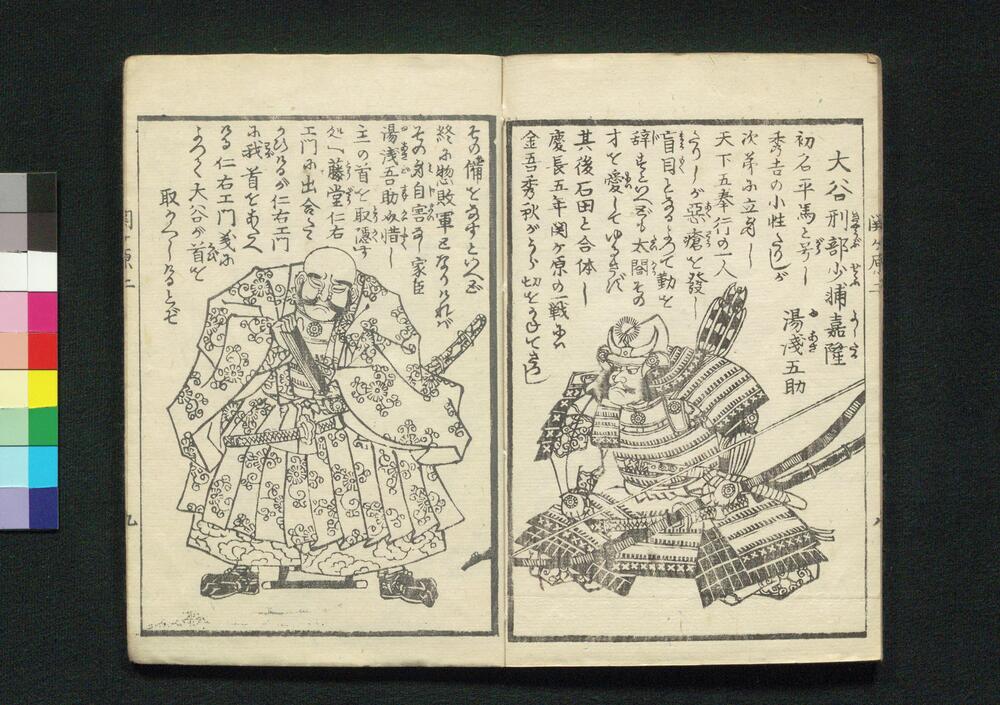 大谷刑部少輔嘉隆
湯淺五助
初名平馬と号し
秀吉の小性たりしが
次第に立身し
天下五奉行の一人
たりしが惡瘡を發し
盲目となるゆへ勤を
辞すといへども太閤その
才を愛してゆるさず
其後石田と合体し
慶長五年関ヶ原の一戦に
金吾秀秋がうら切を
その備をなすといへども
終に惣敗軍となりければ
その身自害なし家臣
湯淺五助
主の首を取隠す
処へ藤堂仁右
エ門に出合たり
仁右エ門
に我首をあたへ
る仁右エ門義に
よつて大谷が首を
取かへしけるとぞ